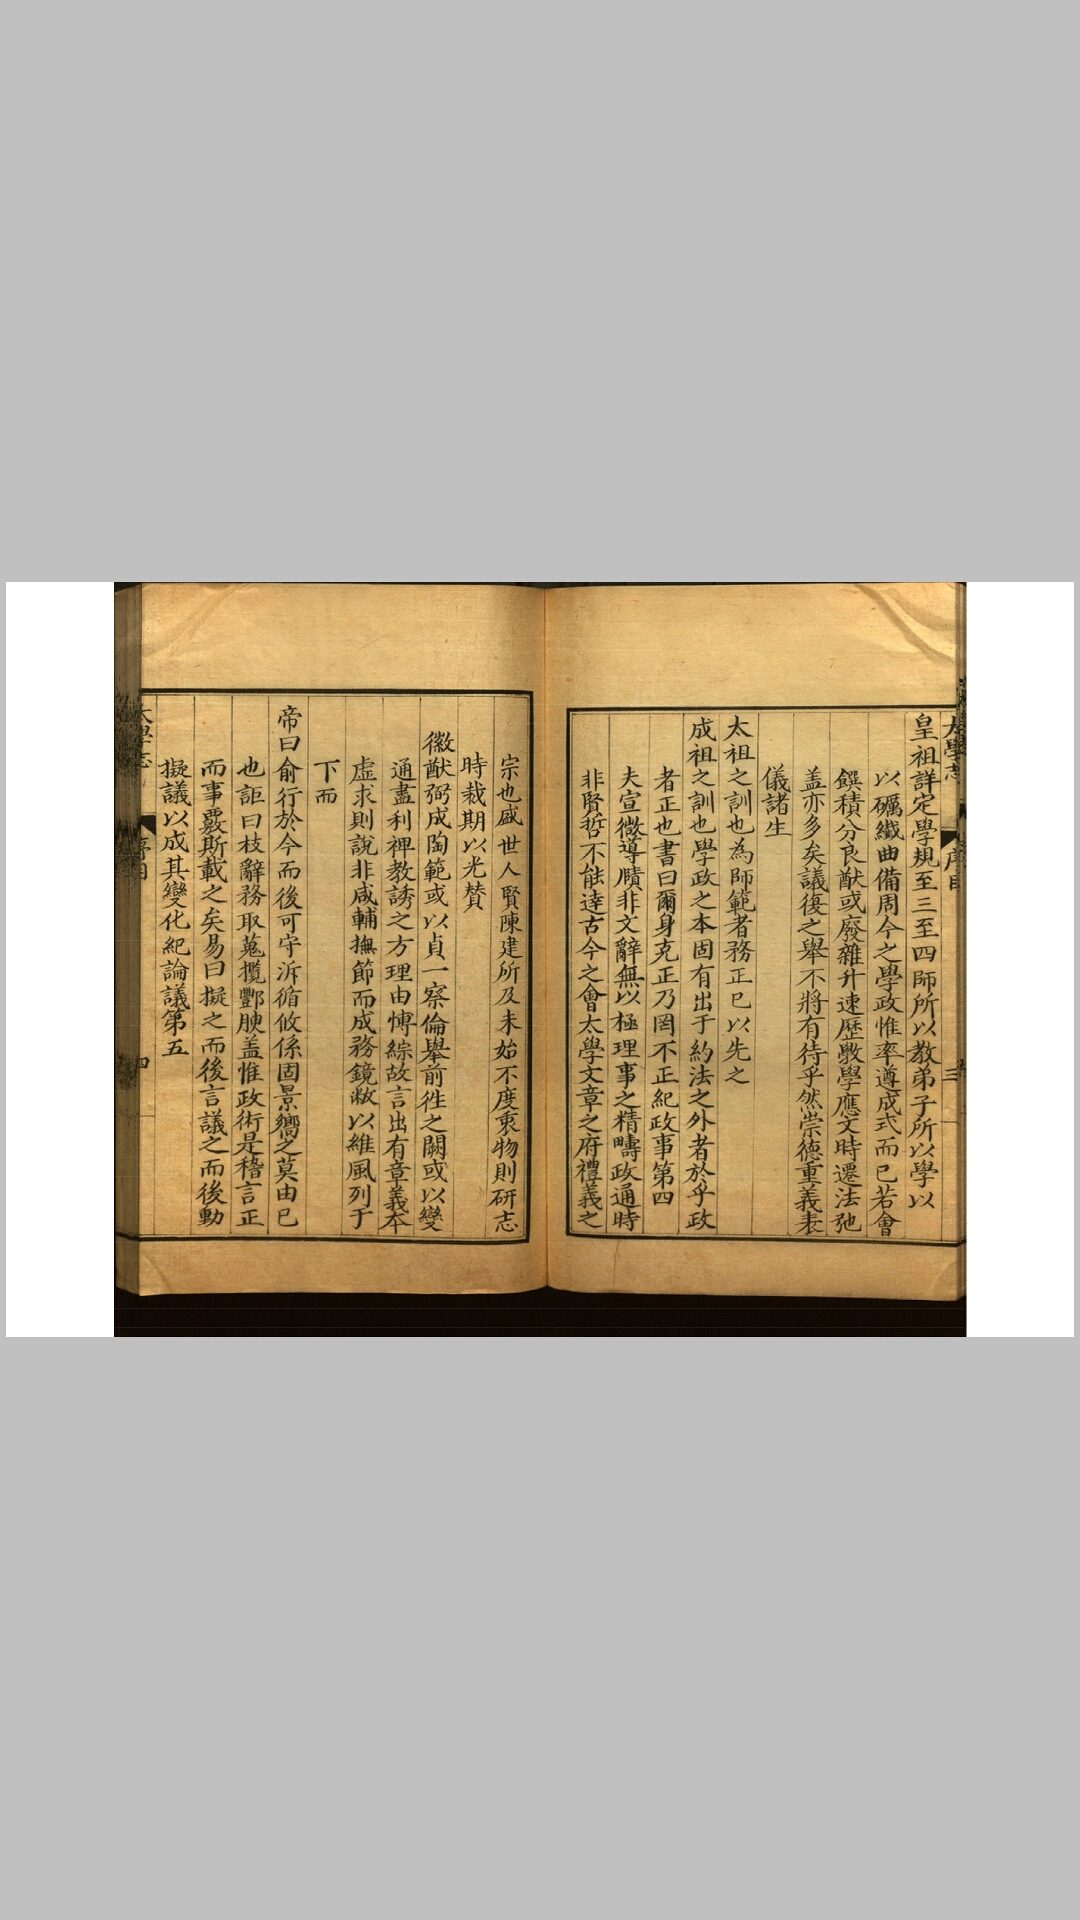 皇祖詳定學規至三至四師所以教弟子所以學以
以礪纖曲備周今之學政惟率遵成式而已若會
饌積分良猷或廢雜升速歷斆學應文時遷法弛
盖亦多矣議復之舉不將有待乎然崇德重義表
儀諸生
太祖之訓也為師範者務正已以先之
成祖之訓也學政之本固有出于約法之外者於乎政
者正也書曰爾身克正乃罔不正紀政事第四
夫宣微導賾非文辭無以極理事之精疇政通時
非賢哲不能達古今之會太學文章之府禮義之
宗也盛世人賢陳建所及未始不度衷物則研志
時裁期以光贊
徽猷弼成陶範或以貞一察倫舉前徃之闕或以變
通盡利裨教誘之方理由愽綜故言出有章義本
虛求則說非咸輔撫節而成務鏡敝以維風列于
下而
帝曰俞行於今而後可守泝循攸係固景嚮之莫由已
也詎曰枝辭務取蒐攬酆腴盖惟政術是稽言正
而事覈斯載之矣易曰擬之而後言議之而後動
擬議以成其變化紀論議第五
太學志
序目
四